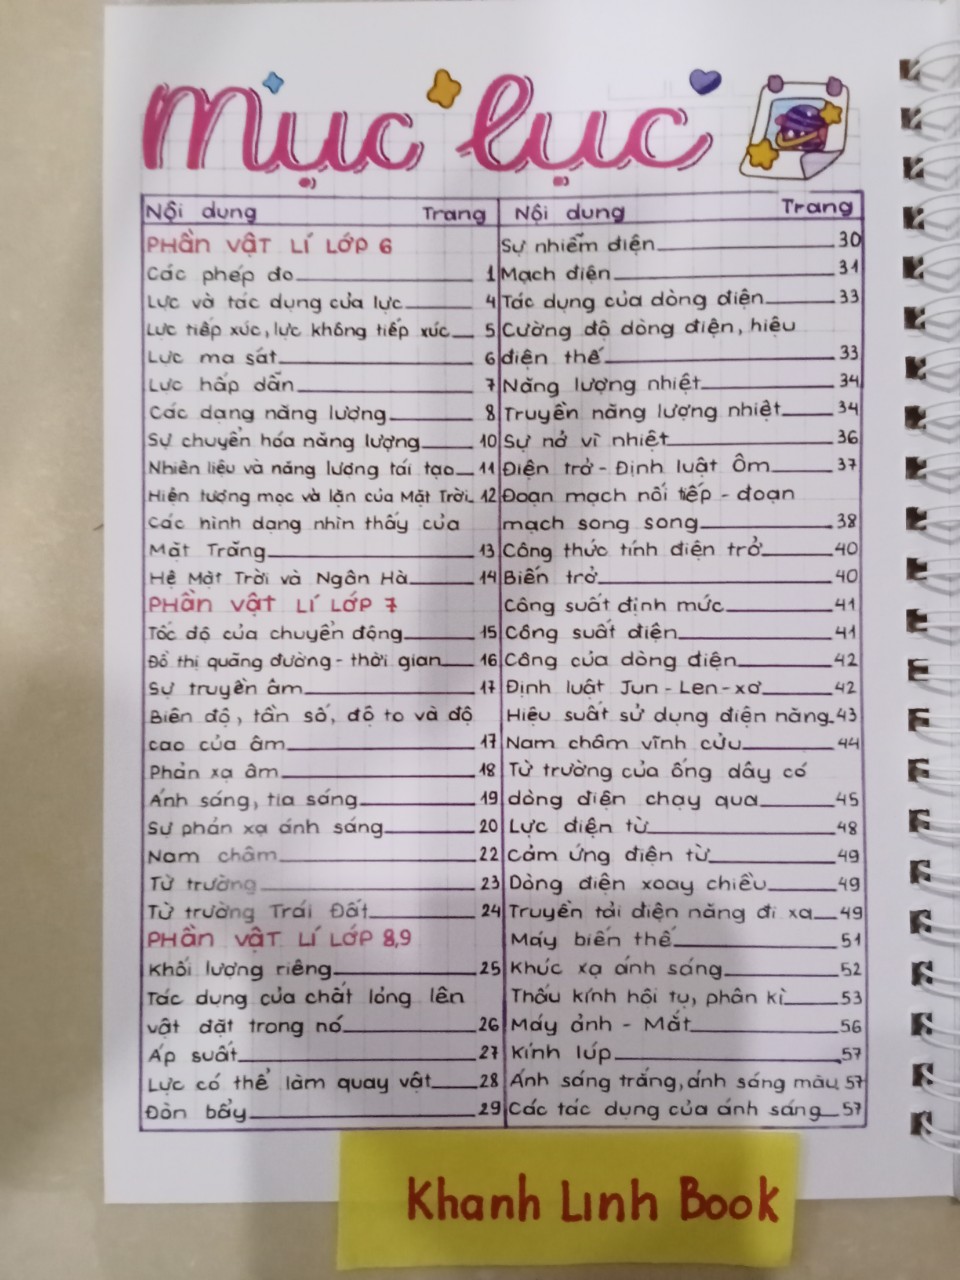 Mục lục
Nội dung Trang
PHẦN VẬT LÍ LỚP 6
Các phép đo 1
Lực và tác dụng của lực 4
Lực tiếp xúc, lực không tiếp xúc 5
Lực ma sát 6
Lực hấp dẫn 7
Các dạng năng lượng 8
Sự chuyển hóa năng lượng 10
Nhiên liệu và năng lượng tái tạo 11
Hiện tượng mọc và lặn của Mặt Trời 12
Các hình dạng nhìn thấy của
Mặt Trăng 13
Hệ Mặt Trời và Ngân Hà 14
PHẦN VẬT LÍ LỚP 7
Tốc độ của chuyển động 15
Đồ thị quãng đường - thời gian 16
Sự truyền âm 17
Biên độ, tần số, độ to và độ
cao của âm 17
Phản xạ âm 18
Ánh sáng, tia sáng 19
Sự phản xạ ánh sáng 20
Nam châm 22
Từ trường 23
Từ trường Trái Đất 24
PHẦN VẬT LÍ LỚP 8,9
Khối lượng riêng 25
Tác dụng của chất lỏng lên
vật đặt trong nó 26
Áp suất 27
Lực có thể làm quay vật 28
Đòn bẩy 29
Nội dung Trang
Sự nhiễm điện 30
Mạch điện 31
Tác dụng của dòng điện 33
Cường độ dòng điện, hiệu
điện thế 33
Năng lượng nhiệt 34
Truyền năng lượng nhiệt 34
Sự nở vì nhiệt 36
Điện trở - Định luật Ôm 37
Đoạn mạch nối tiếp - đoạn
mạch song song 38
Công thức tính điện trở 40
Biến trở 40
Công suất định mức 41
Công suất điện 41
Công của dòng điện 42
Định luật Jun - Len - xơ 42
Hiệu suất sử dụng điện năng 43
Nam châm vĩnh cửu 44
Từ trường của ống dây có
dòng điện chạy qua 45
Lực điện từ 48
Cảm ứng điện từ 49
Dòng điện xoay chiều 49
Truyền tải điện năng đi xa 49
Máy biến thế 51
Khúc xạ ánh sáng 52
Thấu kính hội tụ, phân kì 53
Máy ảnh - Mắt 56
Kính lúp 57
Ánh sáng trắng, ánh sáng màu 57
Các tác dụng của ánh sáng 57
Khanh Linh Book